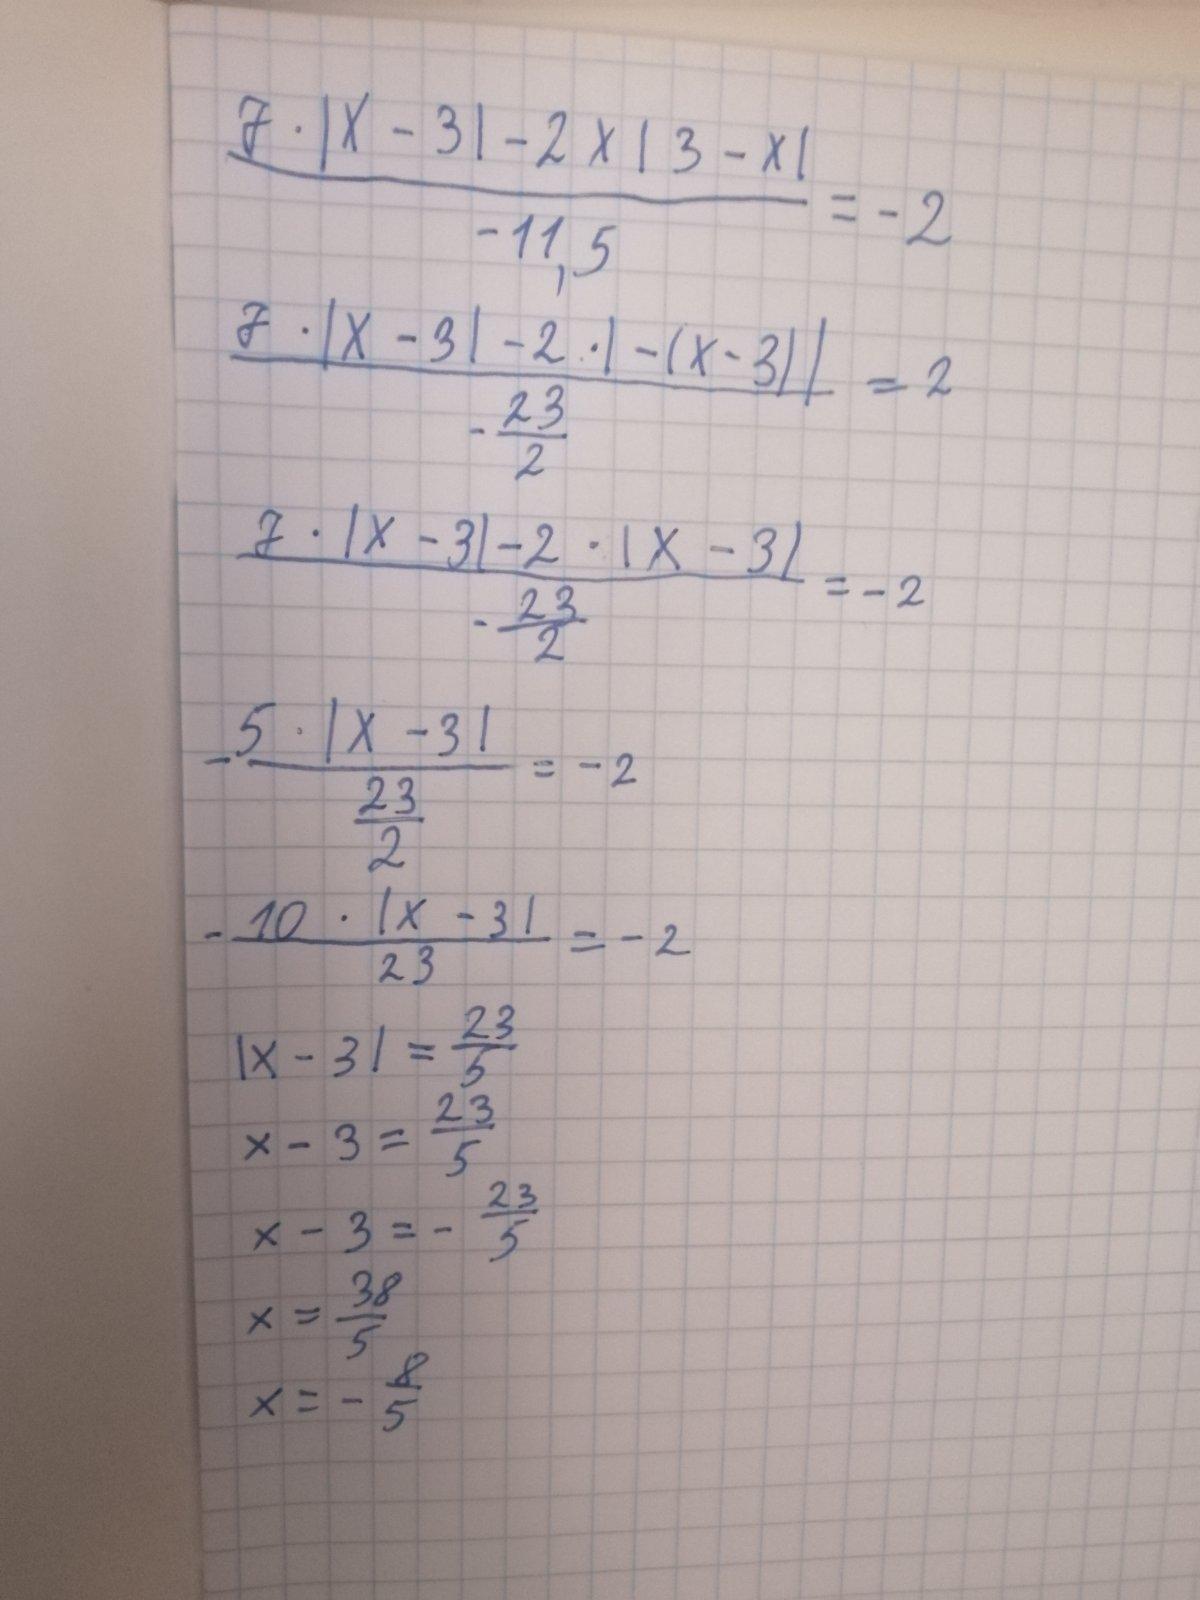 (7 · |x - 3| - 2 x | 3 - x|) / (-11,5) = -2
(7 · |x - 3| - 2 · | -(x - 3)|) / (-23/2) = 2
(7 · |x - 3| - 2 · |x - 3|) / (-23/2) = -2
- (5 · |x - 3|) / (23/2) = -2
- (10 · |x - 3|) / 23 = -2
|x - 3| = 23/5
x - 3 = 23/5
x - 3 = - 23/5
x = 38/5
x = - 8/5